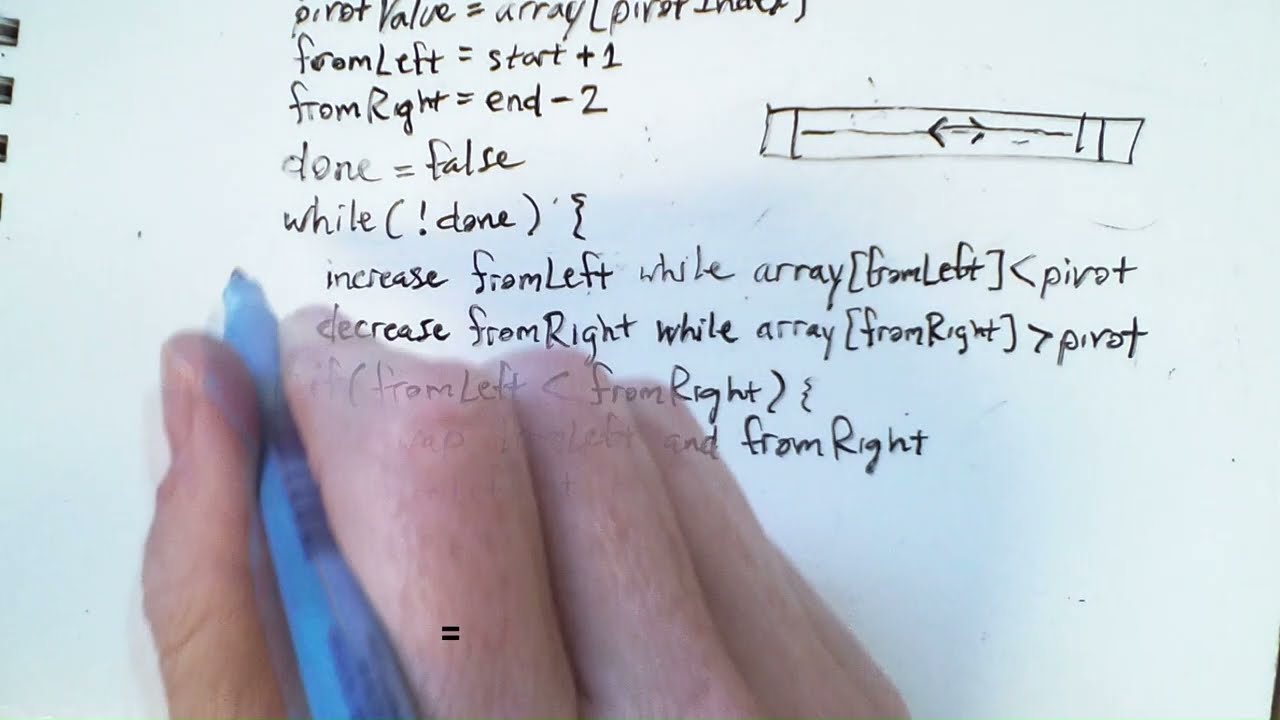 pivotValue = array[pivotIndex]
fromLeft = start + 1
fromRight = end - 2
done = false
while(!done) {
increase fromLeft while array[fromLeft] < pivot
decrease fromRight while array[fromRight] > pivot
if(fromLeft < fromRight) {
swap fromLeft and fromRight
=